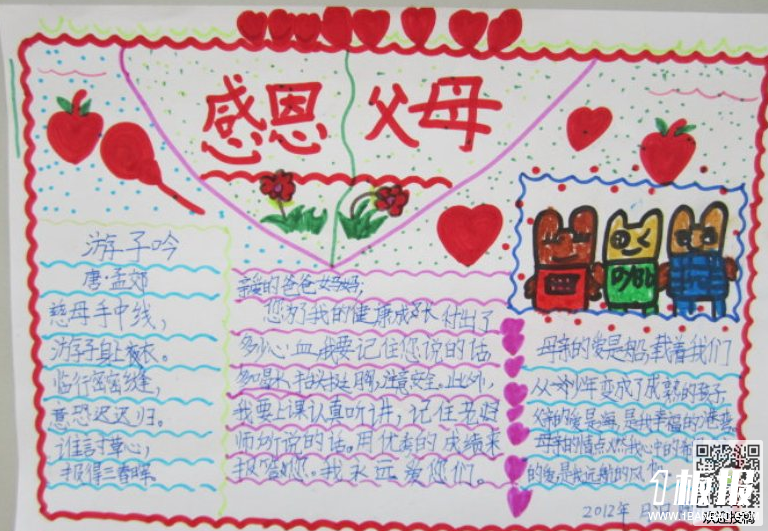 感恩 父母
游子吟
唐·孟郊
慈母手中线，
游子身上衣。
临行密密缝，
意恐迟迟归。
谁言寸草心，
报得三春晖。
亲爱的爸爸妈妈，
您为了我的健康成长付出了
多少心血,我要记住您说的话
多喝水,挺胸,注意安全。此外,
我要上课认真听讲，记住老师
所说的话。用优秀的成绩来
报答您。我永远爱你们。
母亲的爱是船,载着我们
从少年变成了成熟的孩子,
父亲的爱是海,是我幸福的港湾
母亲的 点燃我心中的
的爱,是我远航的风
2012年 月
1板报
WWW.1BANBAO.COM